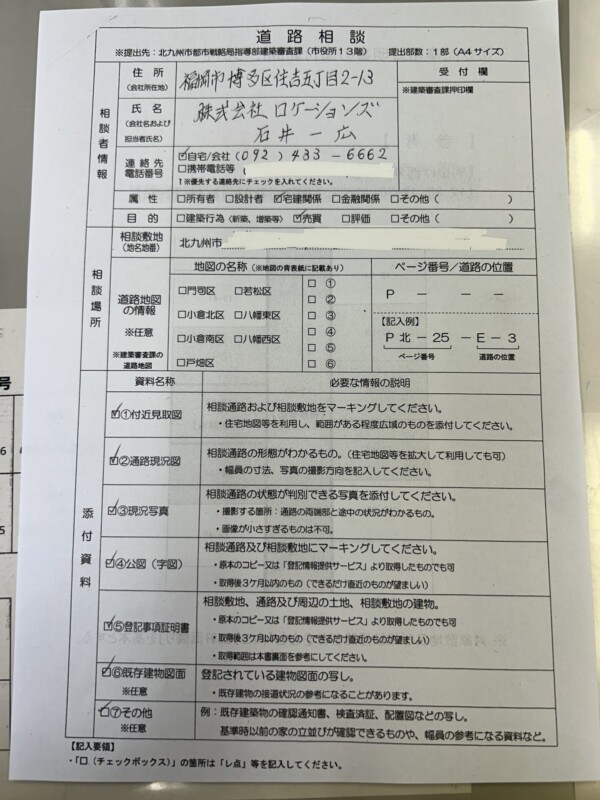 道路相談
※提出先：北九州市都市戦略局指導部建築審査課（市役所１３階）　提出部数：１部（A４サイズ）
相談者情報
住所
(会社所在地)
福岡市博多区住吉五丁目2-13
受付欄
※建築審査課押印欄
氏名
(会社名および
担当者氏名)
株式会社 ロケーションズ
石井 一広
連絡先
電話番号
☑自宅/会社 (092) 433-6662
□携帯電話等
↑※優先する連絡先にチェックを入れてください。
属性　□所有者　□設計者　☑宅建関係　□金融関係　□その他（　）
目的　□建築行為（新築、増築等）　☑売買　□評価　□その他（　）
相談場所
相談敷地
(地名地番)
北九州市
道路地図
の情報
※任意
※建築審査課の
道路地図
地図の名称（※地図の背表紙に記載あり）
□門司区　□若松区
□小倉北区　□八幡東区
□小倉南区　□八幡西区
□戸畑区
□ ①
□ ②
□ ③
□ ④
□ ⑤
□ ⑥
ページ番号／道路の位置
P － － －
【記入例】
P 北 － 25 － E － 3
ページ番号　道路の位置
添付資料
資料名称　必要な情報の説明
☑①付近見取図
相談通路および相談敷地をマーキングしてください。
・住宅地図等を利用し、範囲がある程度広域のものを添付してください。
☑②通路現況図
相談通路の形態がわかるもの。（住宅地図等を拡大して利用しても可）
・幅員の寸法、写真の撮影方向を記入してください。
☑③現況写真
相談通路の状態が判別できる写真を添付してください。
・撮影する箇所：通路の両端部と途中の状況がわかるもの。
・画像が小さすぎるものは不可。
☑④公図（字図）
相談通路及び相談敷地にマーキングしてください。
・原本のコピー又は「登記情報提供サービス」より取得したものでも可
・取得後３ケ月以内のもの（できるだけ直近のものが望ましい）
☑⑤登記事項証明書
相談敷地、通路及び周辺の土地、相談敷地の建物。
・原本のコピー又は「登記情報提供サービス」より取得したものでも可
・取得後３ケ月以内のもの（できるだけ直近のものが望ましい）
・取得範囲は本書裏面を参考にしてください。
☑⑥既存建物図面
※任意
登記されている建物図面の写し。
・既存建物の接道状況の参考になることがあります。
☑⑦その他
※任意
例：既存建築物の確認通知書、検査済証、配置図などの写し。
基準時以前の家の立並びが確認できるものや、幅員の参考になる資料など。
【記入要領】
・「□（チェックボックス）」の箇所は「レ点」等を記入してください。